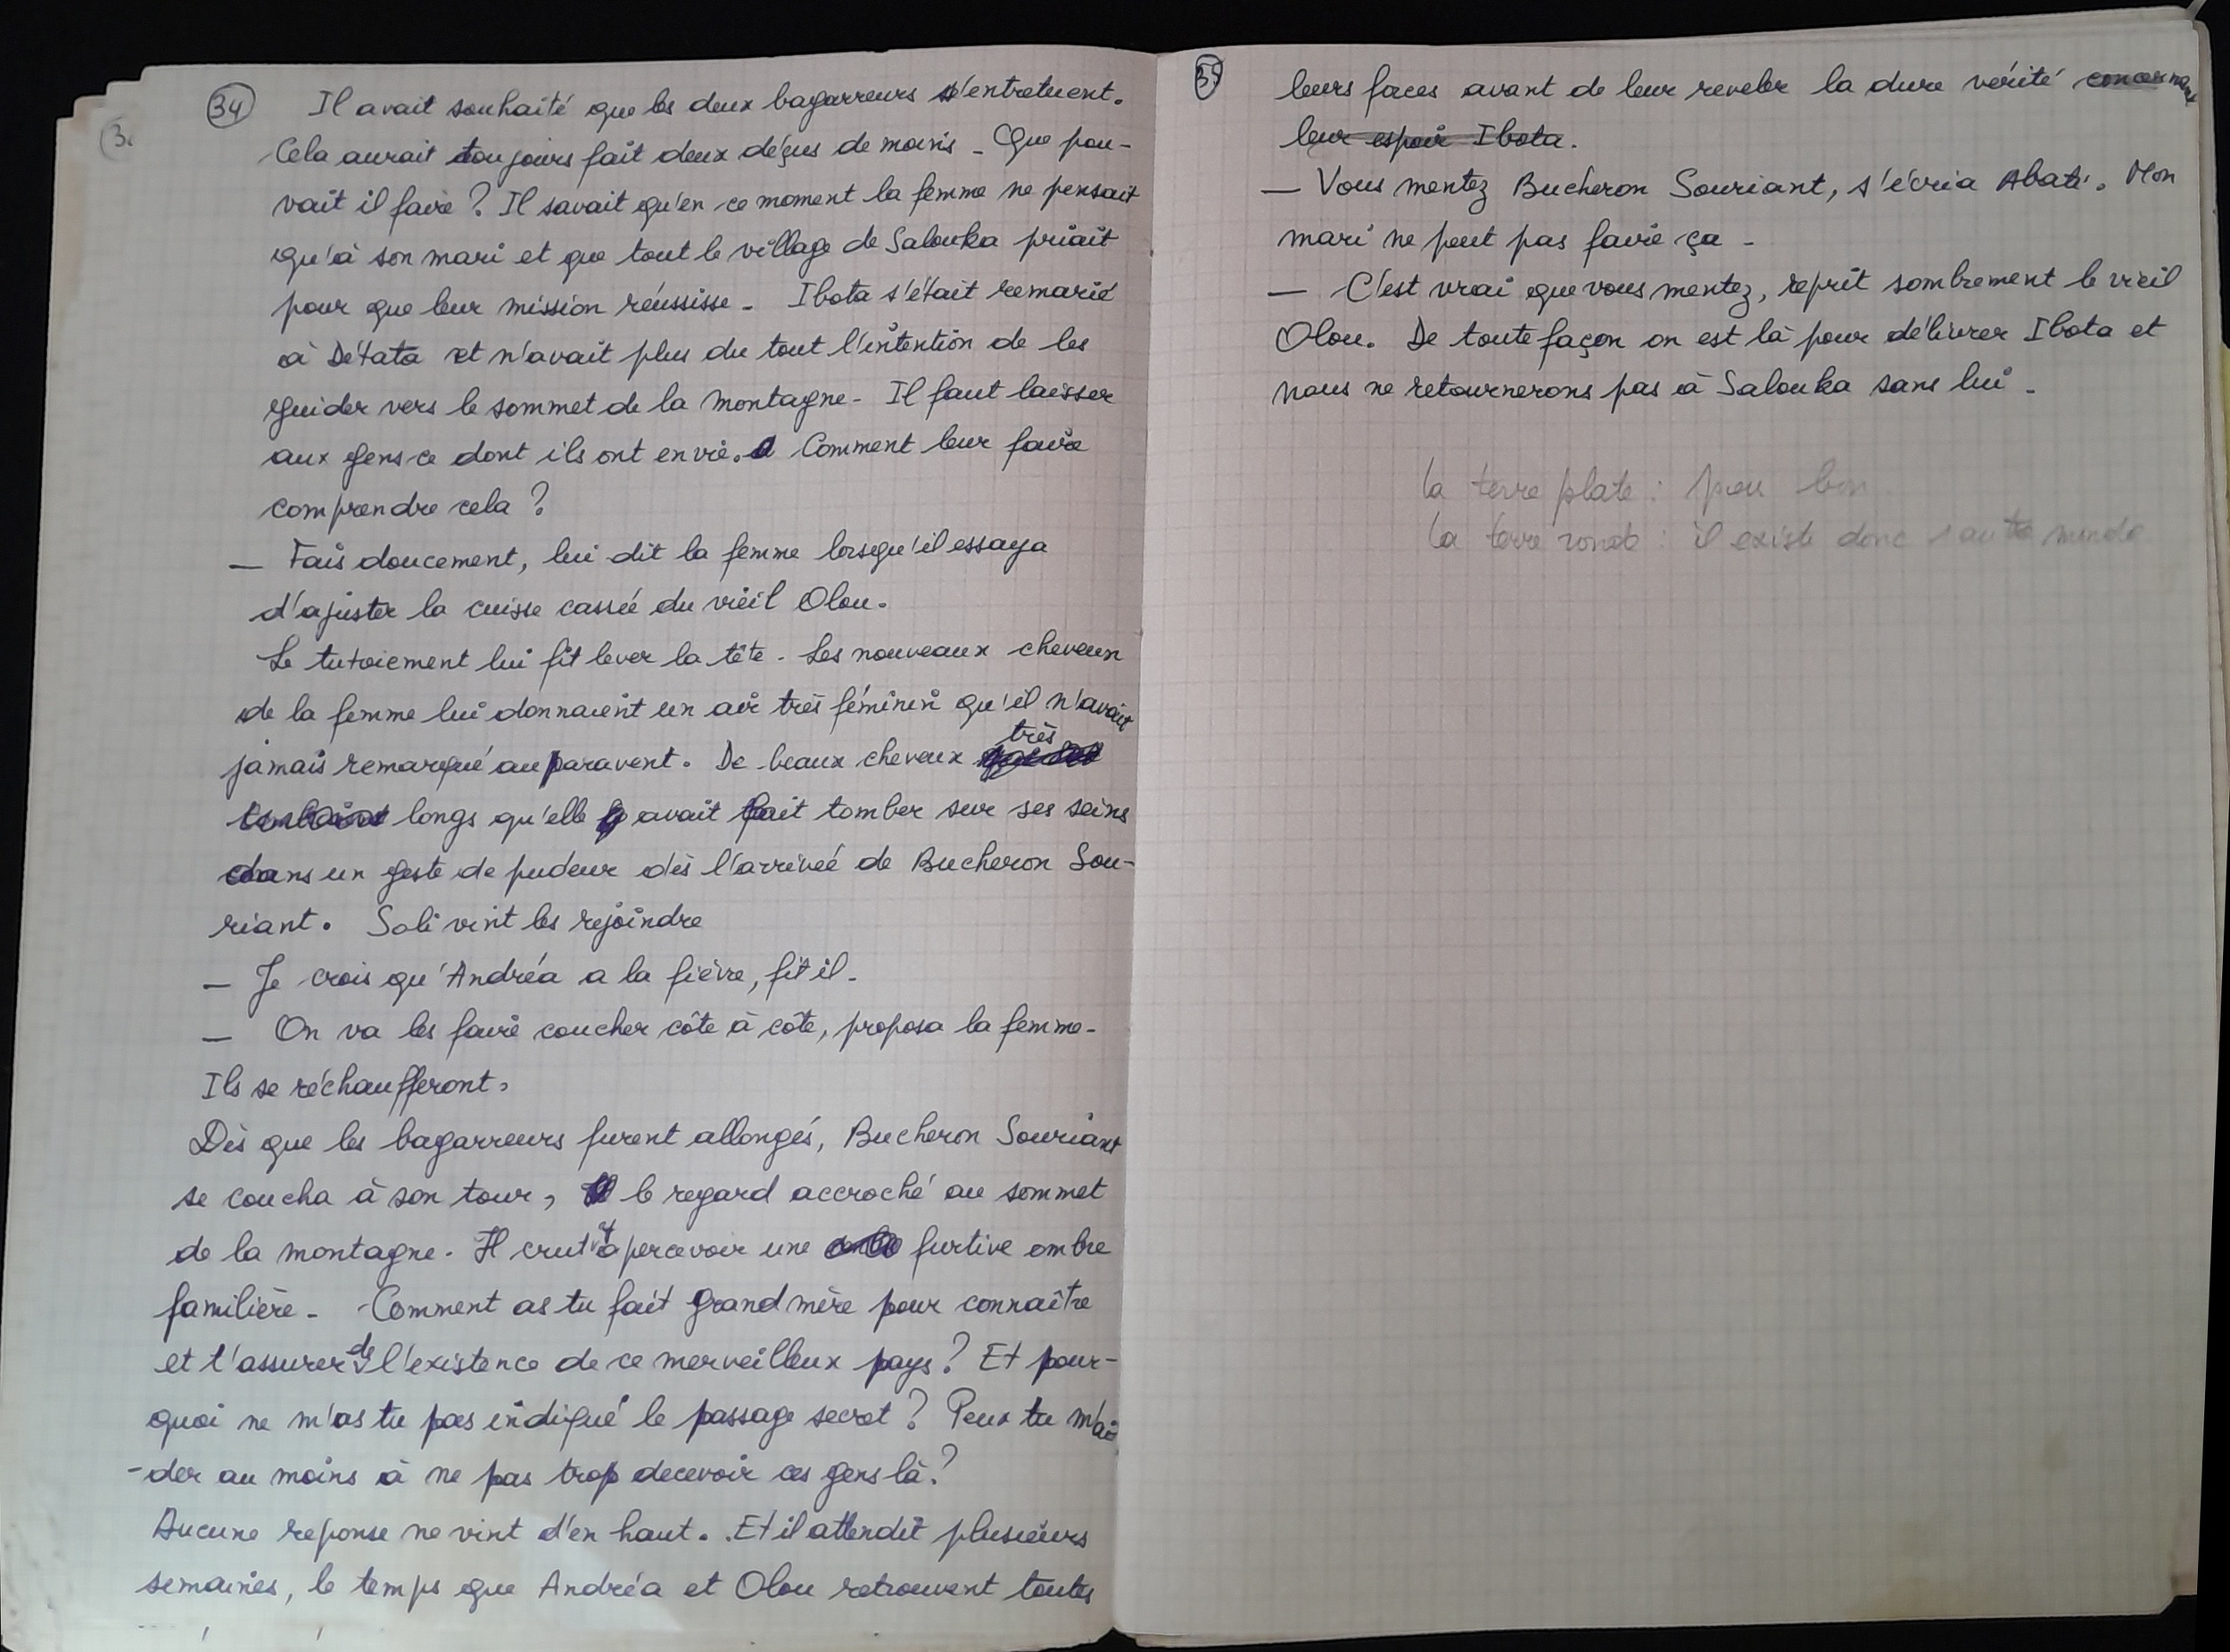 34
Il avait souhaité que les deux bagarreurs s'entretuent.
Cela aurait toujours fait deux déçus de moins - Que pou-
vait il faire ? Il savait qu'en ce moment la femme ne pensait
qu'à son mari et que tout le village de Salouka priait
pour que leur mission réussisse - Ibota s'était remarié
à Détata et n'avait plus du tout l'intention de les
guider vers le sommet de la montagne - Il faut laisser
aux gens ce dont ils ont envie. Comment leur faire
comprendre cela ?
— Fais doucement, lui dit la femme lorsqu'il essaya
d'ajuster la cuisse cassée du vieil Olou.
Le tutoiement lui fit lever la tête - Les nouveaux cheveux
de la femme lui donnaient un air très féminin qu'il n'avait
jamais remarqué auparavent. De beaux cheveux très
longs qu'elle avait fait tomber sur ses seins
dans un geste de pudeur dès l'arrivée de Bucheron Sou-
riant. Soli vint les rejoindre
— Je crois qu'Andréa a la fièvre, fit il -
— On va les faire coucher côte à côte, proposa la femme -
Ils se réchaufferont.
Dès que les bagarreurs furent allongés, Bucheron Souriant
se coucha à son tour, le regard accroché au sommet
de la montagne. Il crut apercevoir une furtive ombre
familière - Comment as tu fait grand mère pour connaître
et t'assurer de l'existence de ce merveilleux pays ? Et pour-
quoi ne m'as tu pas indiqué le passage secret ? Peux tu m'ai
-der au moins à ne pas trop decevoir ces gens là ?
Aucune reponse ne vint d'en haut. Et il attendit plusieurs
semaines, le temps que Andréa et Olou retrouvent toutes
35
leurs faces avant de leur reveler la dure vérité concernant
leur espoir Ibota.
— Vous mentez Bucheron Souriant, s'écria Abati. Mon
mari ne peut pas faire ça -
— C'est vrai que vous mentez, reprit sombrement le vieil
Olou. De toute façon on est là pour délivrer Ibota et
nous ne retournerons pas à Salouka sans lui -
la terre plate : peu bon
la terre ronde : il existe donc 1 autre monde